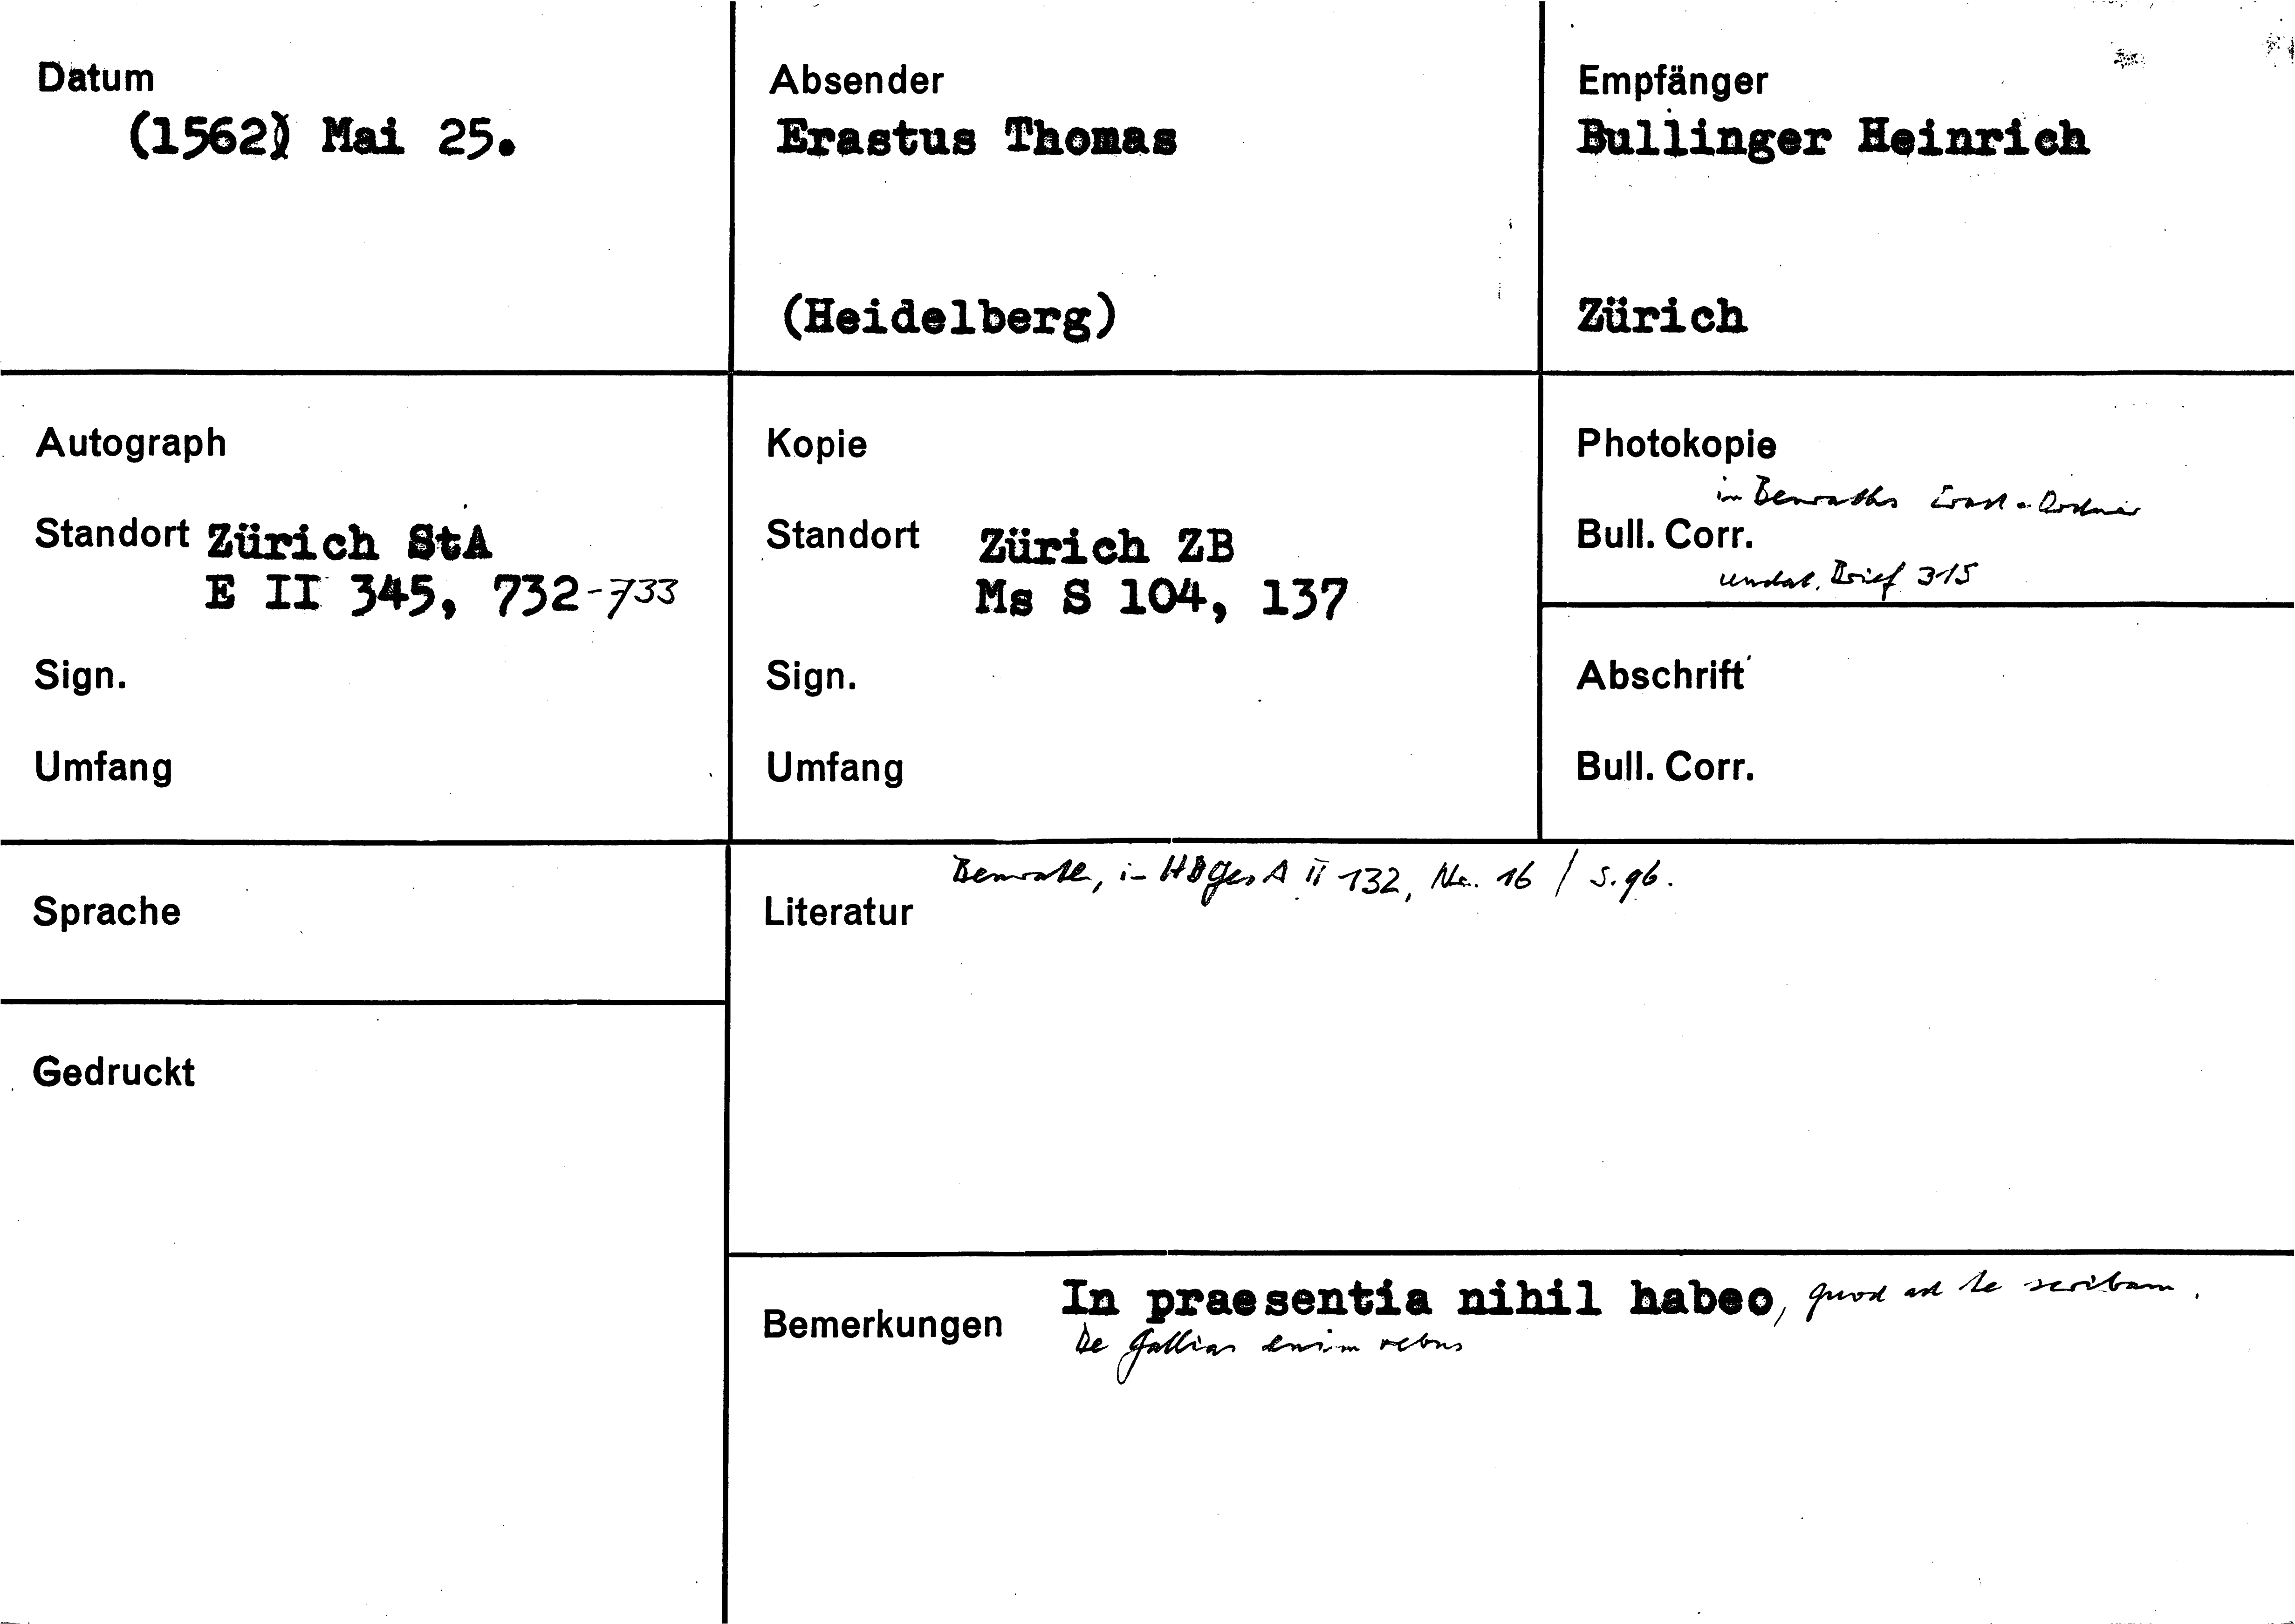 Datum
(1562) Mai 25.
Absender
Erastus Thomas
(Heidelberg)
Empfänger
Bullinger Heinrich
Zürich
Autograph
Standort Zürich StA
E II 345, 732-733
Sign.
Umfang
Kopie
Standort Zürich ZB
Ms S 104, 137
Sign.
Umfang
Photokopie
in Benraths Erast-Ordner
Bull. Corr.
undat. Brief 315
Abschrift
Bull. Corr.
Sprache
Gedruckt
Benrath, in HBGesA II 132, Nr. 16 / S. 96.
Literatur
Bemerkungen In praesentia nihil habeo, quod ad te scribam.
De Gallias enim rebus